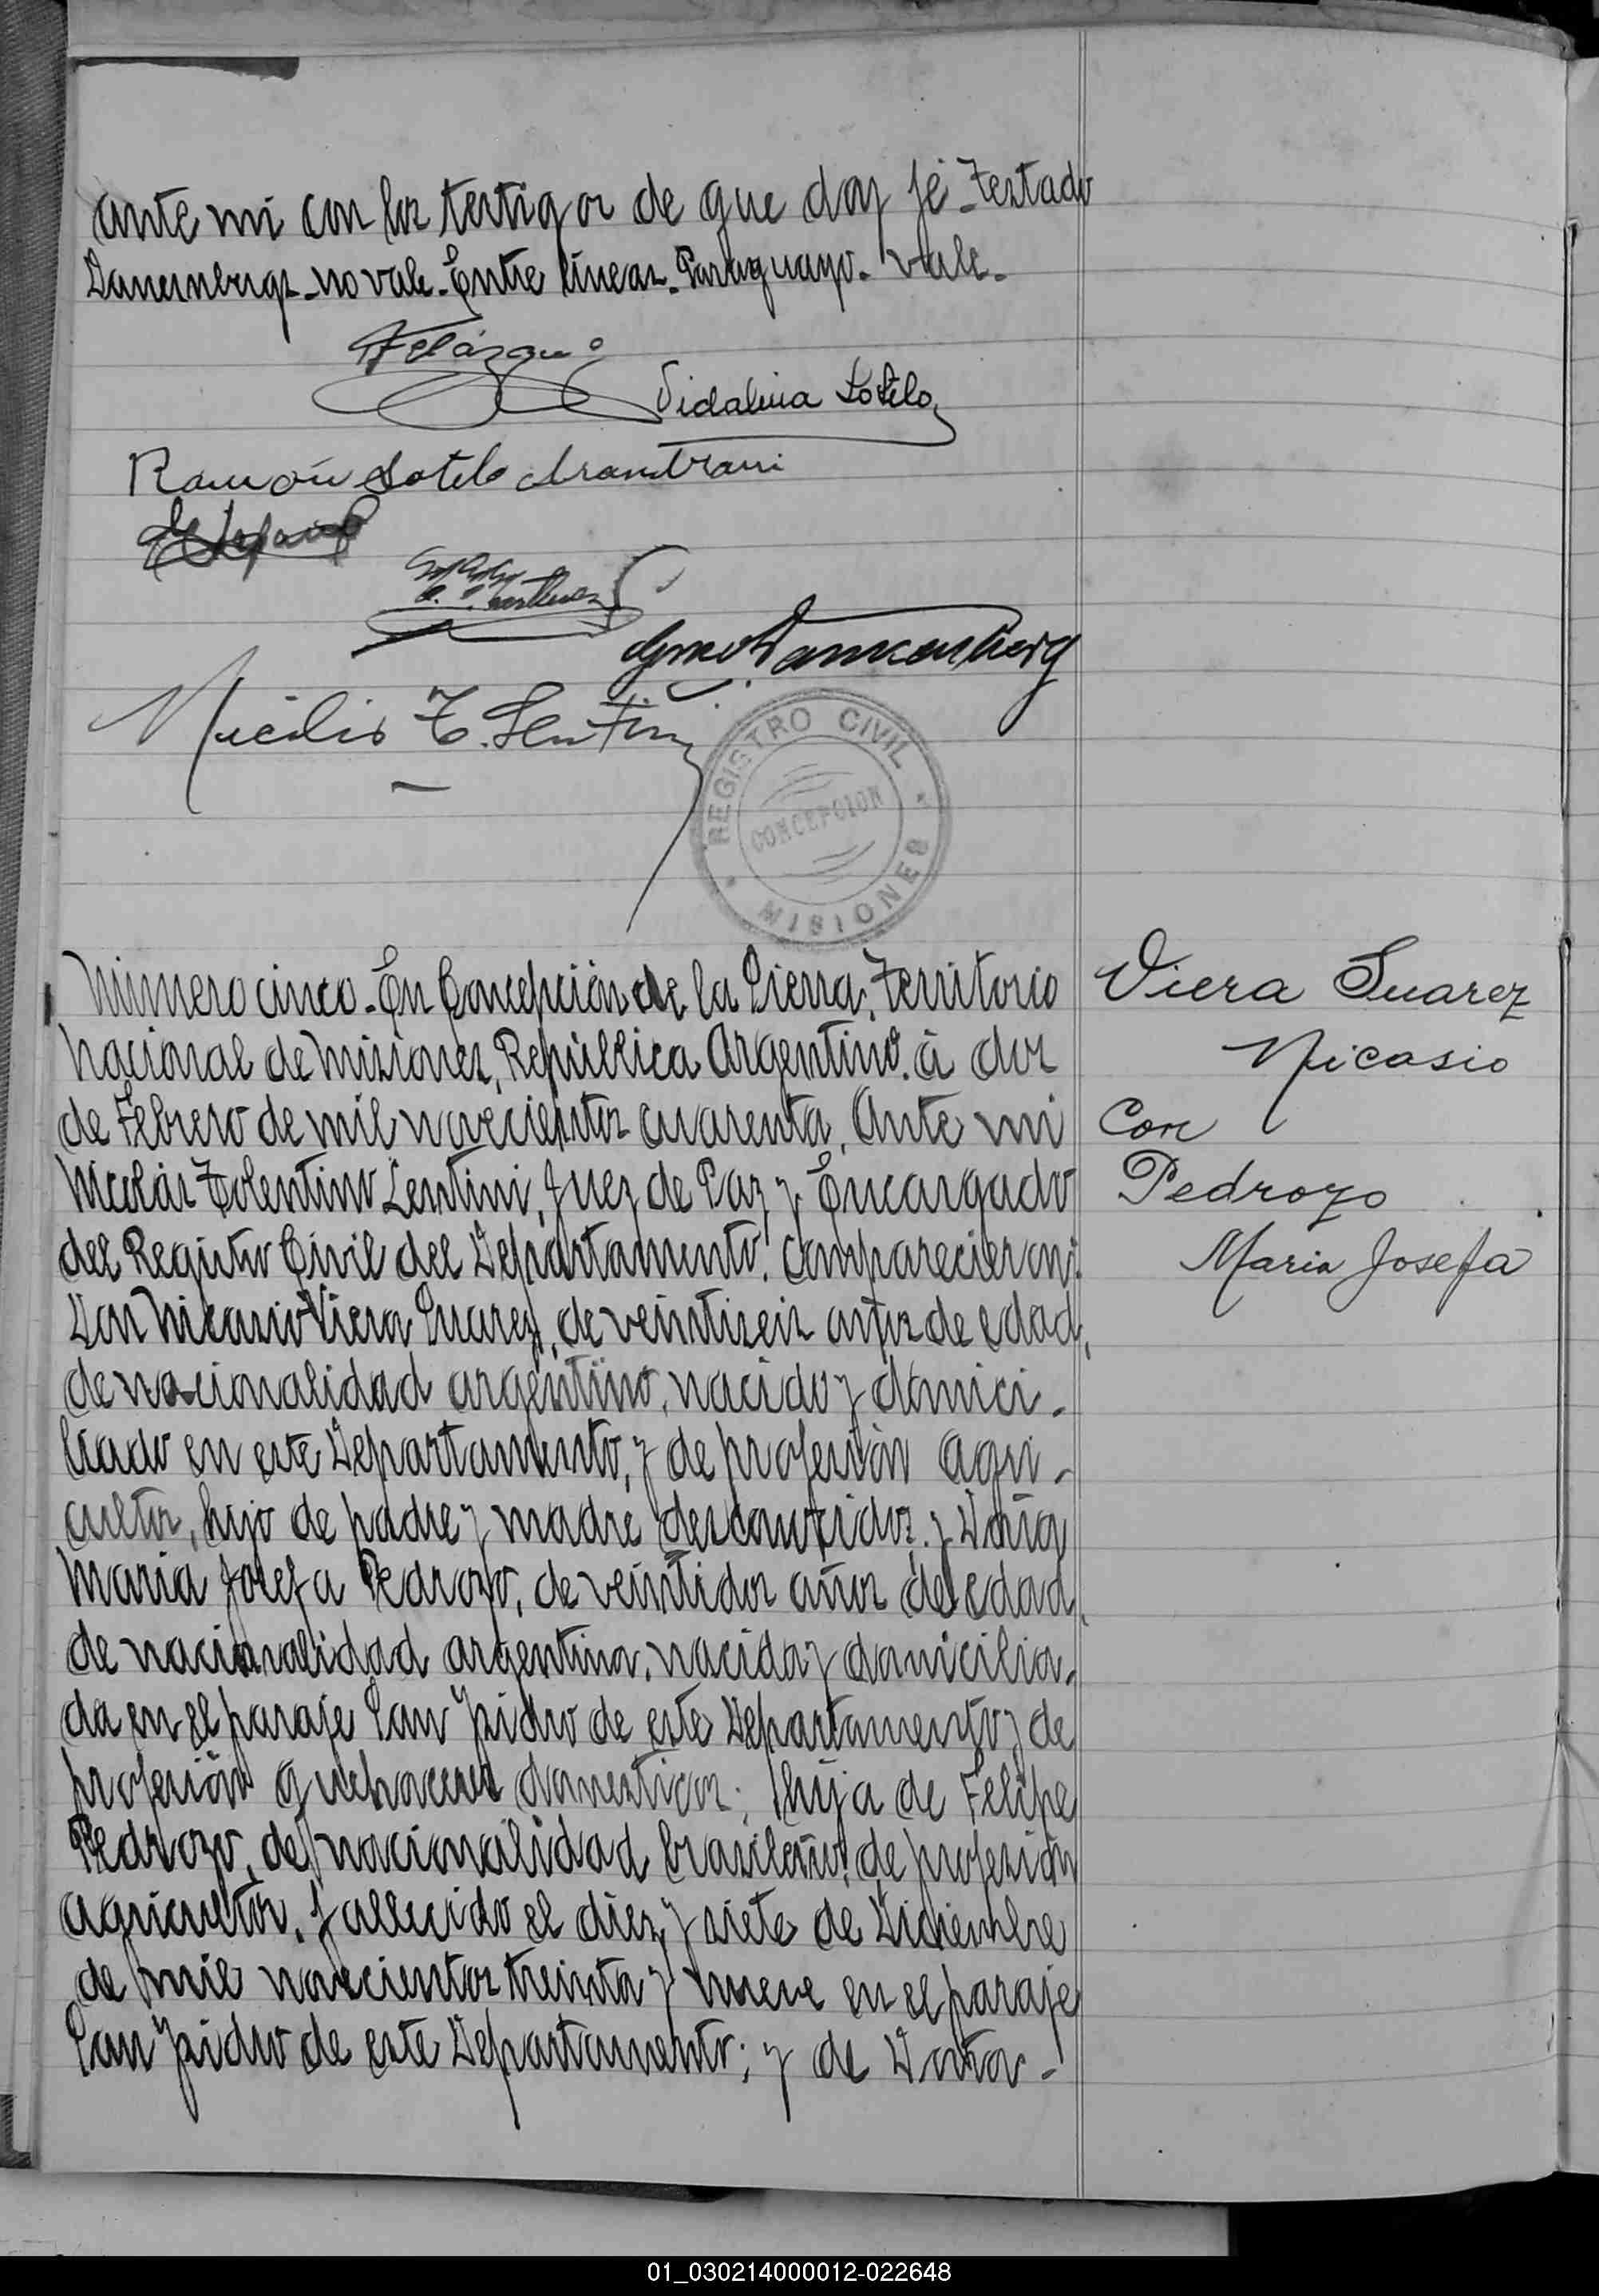 ante mi con los testigos de que doy fé - Testado
Danemberg - no vale - Entre líneas - Paraguayo - vale -
Velázqu
Vidalina Sotelo
Ramón Sotelo
REGISTRO CIVIL
CONCEPCION
MISIONES
Número cinco - En Concepción de la Sierra, Territorio
Nacional de Misiones, República Argentina, á dos
de Febrero de mil novecientos cuarenta, Ante mi
Nicolás Tolentino Lentini, Juez de Paz y Encargado
del Registro Civil del Departamento: comparecieron:
Don Nicasio Viera Suarez, de veintiseis años de edad,
de nacionalidad argentino, nacido y domici-
liado en este Departamento, y de profesión agri-
cultor, hijo de padre y madre desconocidos; y Doña
Maria Josefa Pedrozo, de veintidos años de edad,
de nacionalidad argentina, nacida y domicilia-
da en el paraje San Ysidro de este Departamento y de
profesión quehaceres domesticos; hija de Felipe
Pedrozo, de nacionalidad brasileño, de profesión
agricultor, fallecido el diez y siete de Diciembre
de mil novecientos treinta y nueve en el paraje
San Ysidro de este Departamento; y de Doña -
Viera Suarez
Nicasio
Con
Pedrozo
Maria Josefa
01_030214000012-022648